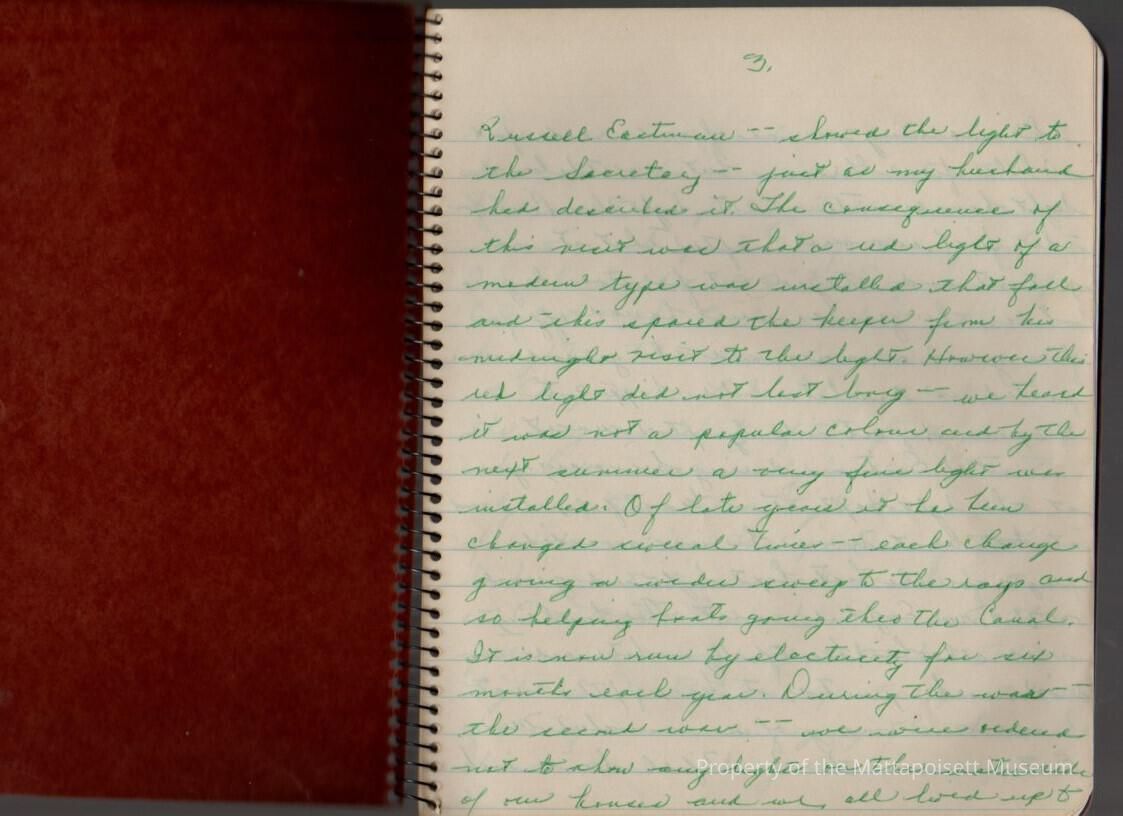 3.
Russell Eastman -- showed the light to
the Secretary -- just as my husband
had described it. The consequence of
this visit was that a red light of a
modern type was installed that fall
and this spared the keeper from his
midnight visit to the light. However this
red light did not last long -- we heard
it was not a popular colour and by the
next summer a very fine light was
installed. Of late years it has been
changed several times -- each change
giving a wider sweep to the rays and
so helping boats going thro the Canal.
It is now run by electricity for six
months each year. During the war -
the second war -- we were ordered
not to show any lights on the
of our houses and we all lived up to
Property of the Mattapoisett Museum